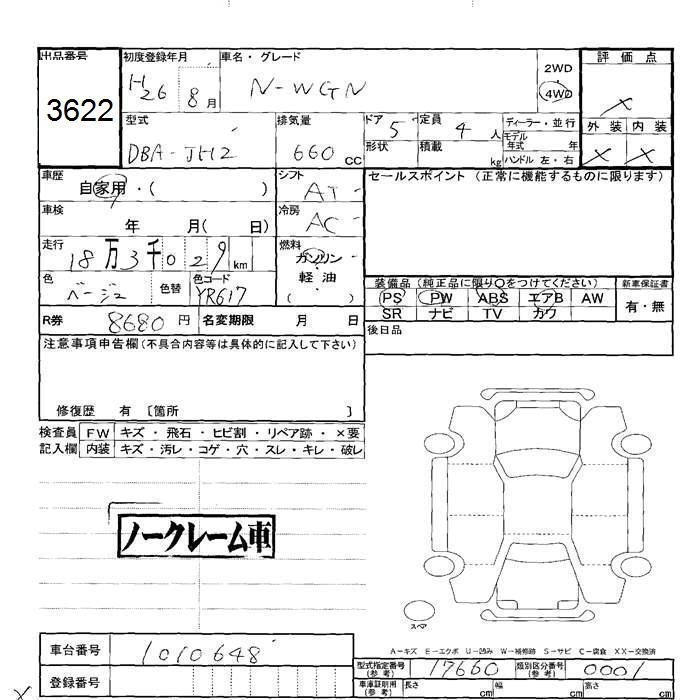 出品番号
3622
初度登録年月
H26 8月
車名・グレード
N-WGN
2WD
4WD
評価点
×
外装 内装
× ×
型式
DBA-JH2
排気量
660 cc
ドア 5
形状
定員 4人
積載 kg
ディーラー・並行
モデル
年式 年
ハンドル 左・右
車歴
自家用・( )
シフト
AT
セールスポイント (正常に機能するものに限ります)
車検
年 月( 日)
冷房
AC
走行
18万3千029km
燃料
ガソリン
・
軽油
( )
色
ベージュ
色替
色コード
YR617
装備品 (純正品に限り○をつけてください)
新車保証書
PS PW ABS エアB AW
SR ナビ TV カワ
有・無
R券 8680円 名変期限 月 日
後日品
注意事項申告欄(不具合内容等は具体的に記入して下さい)
修復歴 有 〔箇所 〕
検査員 FW キズ・飛石・ヒビ割・リペア跡・×要
記入欄 内装 キズ・汚レ・コゲ・穴・スレ・キレ・破レ
ノークレーム車
スペア
A-キズ E-エクボ U-凹み W-補修跡 S-サビ C-腐食 XX-交換済
車台番号 1010648
型式指定番号(参考) 17660 類別区分番号(参考) 0001
登録番号
車庫証明用(参考) 長さ cm 幅 cm 高さ cm
×